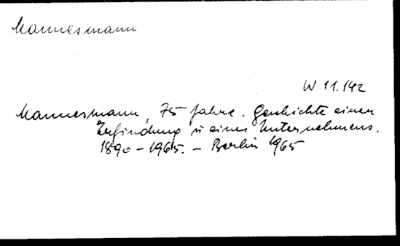 Mannesmann
W 11.142
Mannesmann, 75 Jahre. Geschichte einer
Erfindung u. eines Unternehmens.
1890-1965. - Berlin 1965